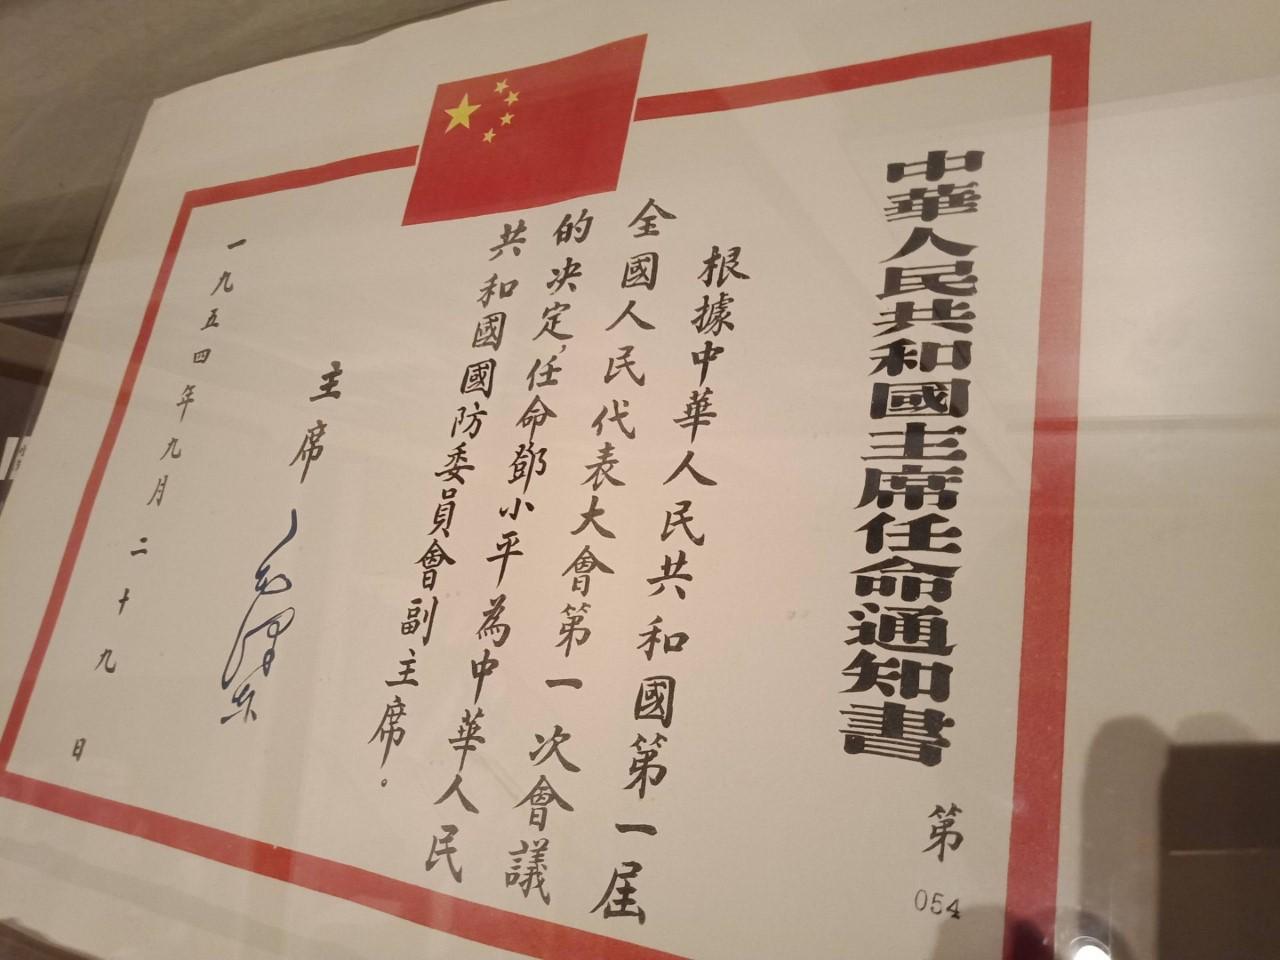 中華人民共和國主席任命通知書
第
054
根據中華人民共和國第一屆
全國人民代表大會第一次會議
的决定，任命鄧小平為中華人民
共和國國防委員會副主席。
主席 毛澤东
一九五四年九月二十九日